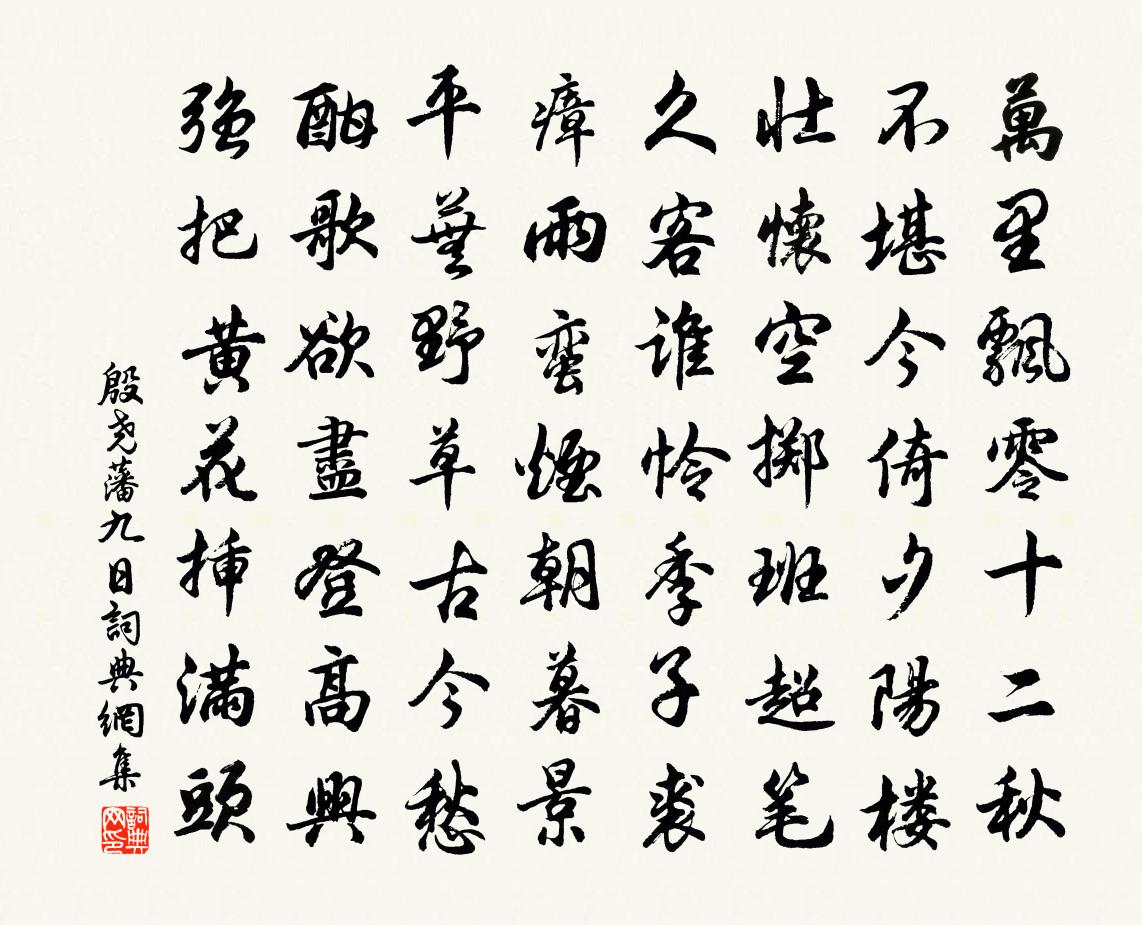 萬里飄零十二秋
不堪今倚夕陽楼
壮懷空擲班超笔
久客誰怜季子裘
瘴雨蛮煙朝暮景
平蕪野草古今愁
酣歌欲盡登高興
強把黃花挿满頭
殷尧藩九日詞典網集
詞典网印